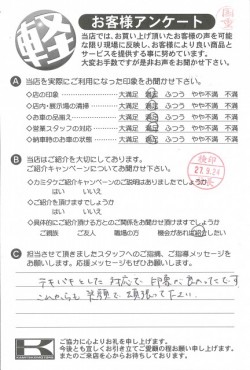 軽
お客様アンケート
当店では、お買い上げ頂いたお客様の声を可能
な限り現場に反映し、お客様により良い商品と
サービスを提供する事に努めています。
大変お手数ですが是非お声をお聞かせ下さい。
A 当店を実際にご利用になった印象をお聞かせ下さい。
◇店の印象 大満足 満足 ふつう やや不満 不満
◇店内・展示場の清掃 大満足 満足 ふつう やや不満 不満
◇お車の品揃え 大満足 満足 ふつう やや不満 不満
◇営業スタッフの対応 大満足 満足 ふつう やや不満 不満
◇納車時のお車の状態 大満足 満足 ふつう やや不満 不満
B 当店はご紹介を大切にしております。
ご紹介キャンペーンについてお聞かせ下さい。
◇カミタケご紹介キャンペーンのご説明はありましたでしょうか
はい いいえ
◇ご紹介を頂けますでしょうか
はい いいえ
◇具体的にご紹介頂ける方とのご関係をお聞かせ頂けますでしょうか
ご親族 ご友人 職場の方 機会があれば紹介したい
検印
27.9.24
C 担当させて頂きましたスタッフへのご指摘、ご指導メッセージを
お願いします。応援メッセージもぜひお願いします。
テキパキとした対応で印象が良かったです
これからも笑顔で頑張って下さい
K
ご協力に心よりお礼を申し上げます。
今後とも宜しくお引き立てご愛顧の程お願い申し上げます。
またのご来店を心からお待ちしております。